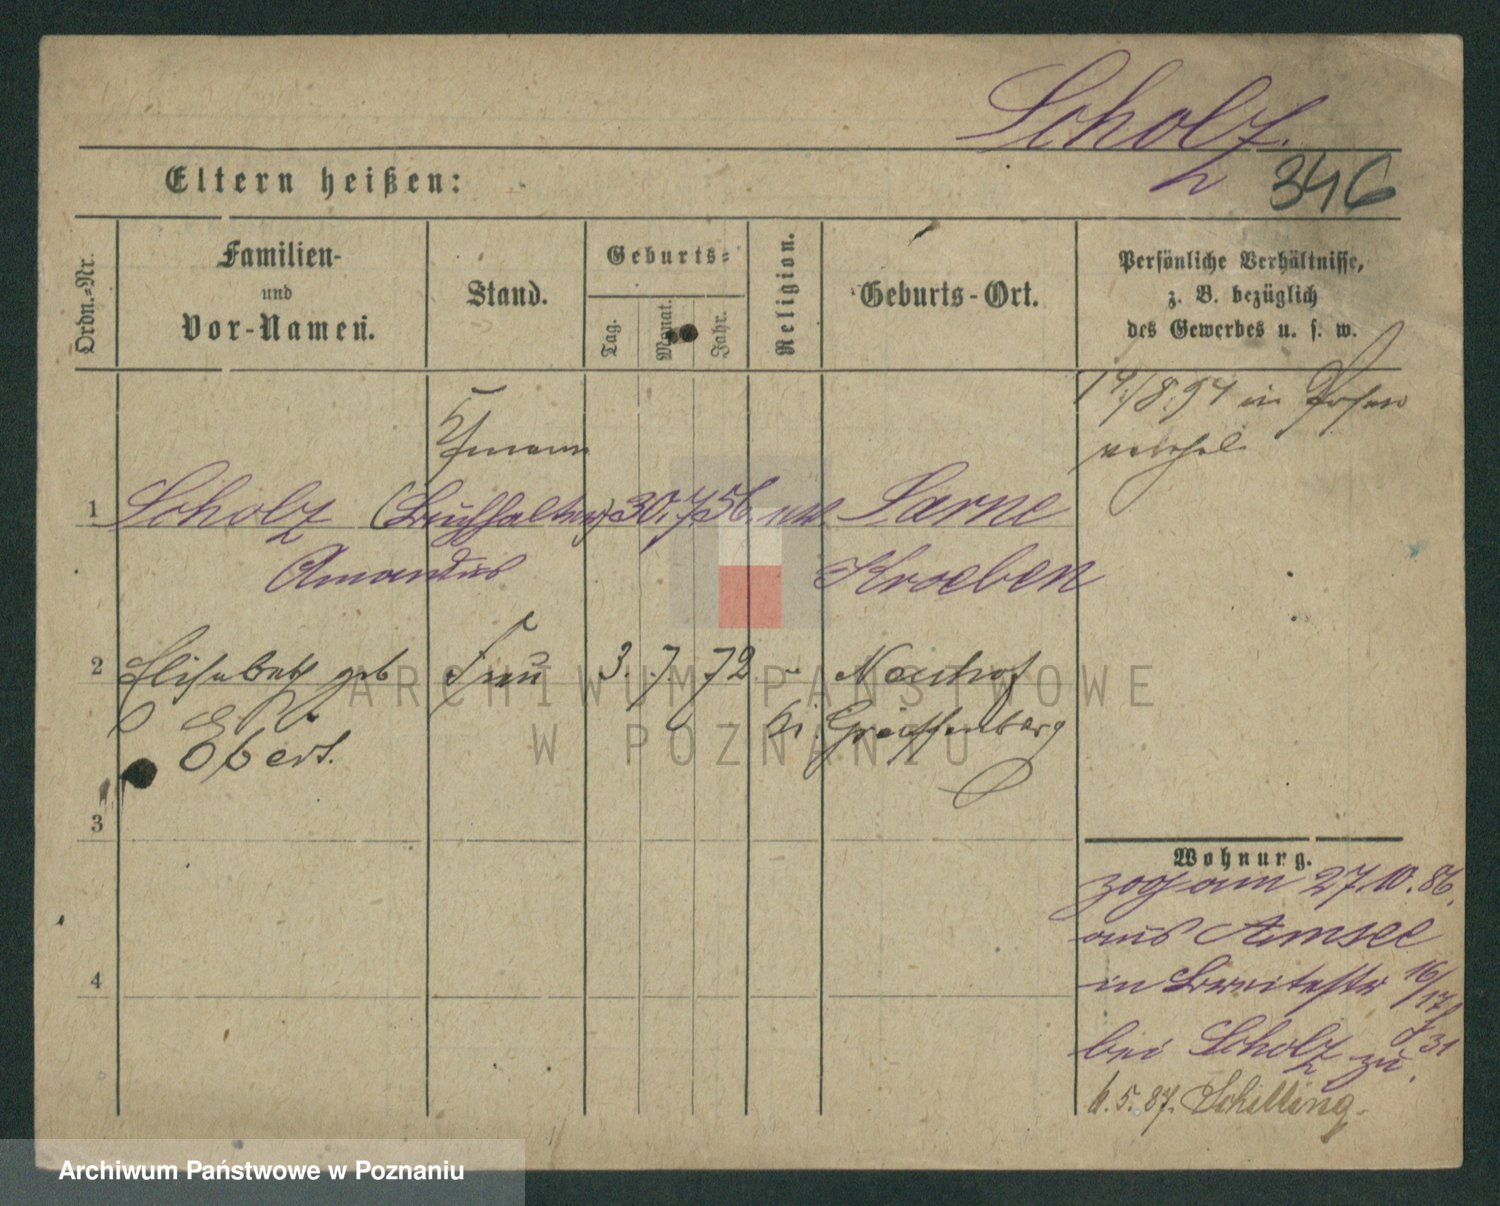 Scholz.
346
Eltern heißen:
Ordn.=Nr.
Familien-
und
Vor-Namen.
Stand.
Geburts=
Tag.
Monat.
Jahr.
Religion.
Geburts-Ort.
Persönliche Verhältnisse,
z. B. bezüglich
des Gewerbes u. s. w.
14/8.94 in Posen
1 Scholz (Buchhalter) 30. 7. 56. Sarne
Amandus Kroeben
2 Elisabeth geb Frau 3. 7. 72 Neuhof
Ebert. Greiffenberg
3
4
Wohnung.
zog am 27.10.86.
aus Amsee
in Breitestr 16/17
bei Scholz zu.
31
5. 87. Schilling.
ARCHIWUM PAŃSTWOWE
W POZNANIU
Archiwum Państwowe w Poznaniu